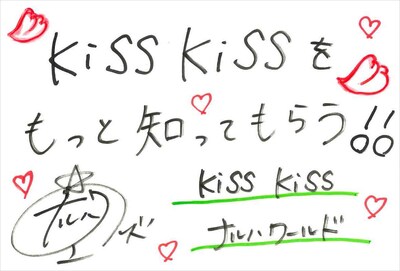 KiSS KiSSを
もっと知ってもらう!!
KiSS KiSS
ナルハワールド